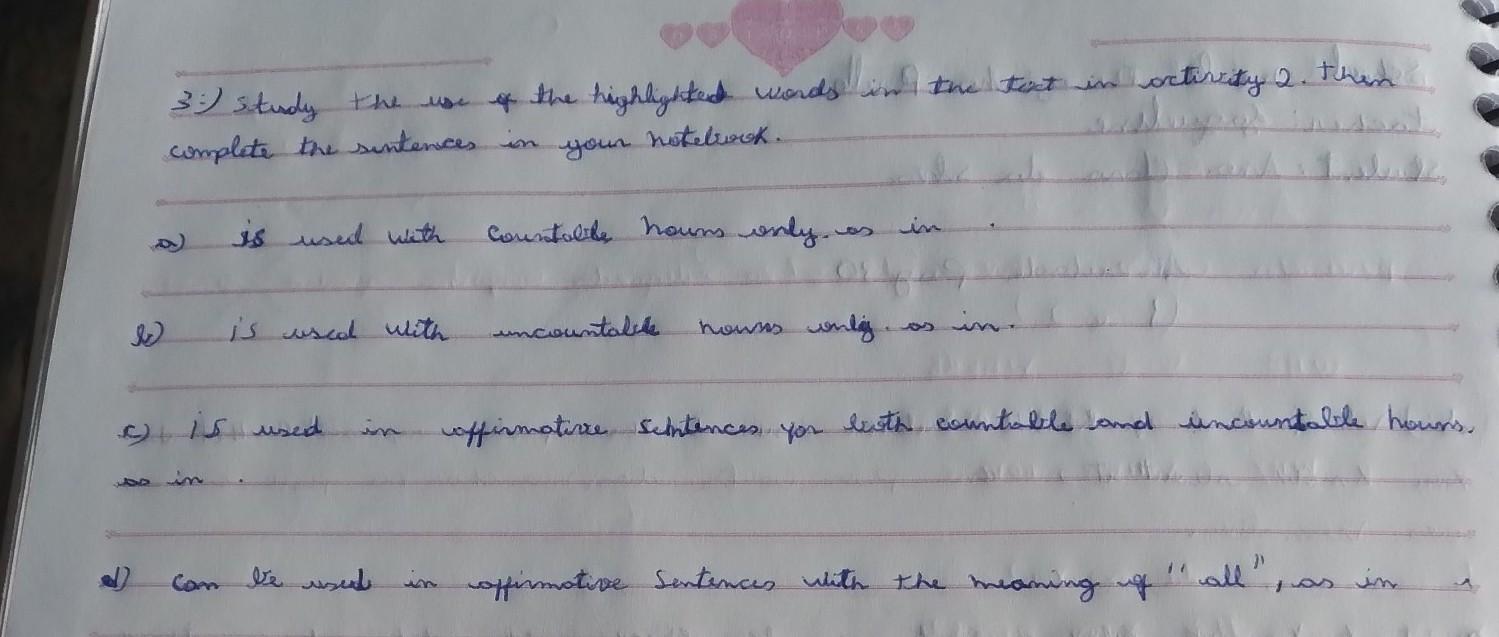 3:) Study the use of the highlighted words in the text in activity 2. Then
complete the sentences in your notebook.
a) is used with countable nouns only. as in .
b) is used with uncountable nouns only. as in.
c) is used in affirmative sentences for both countable and uncountable nouns.
as in .
d) can be used in affirmative sentences with the meaning of "all", as in